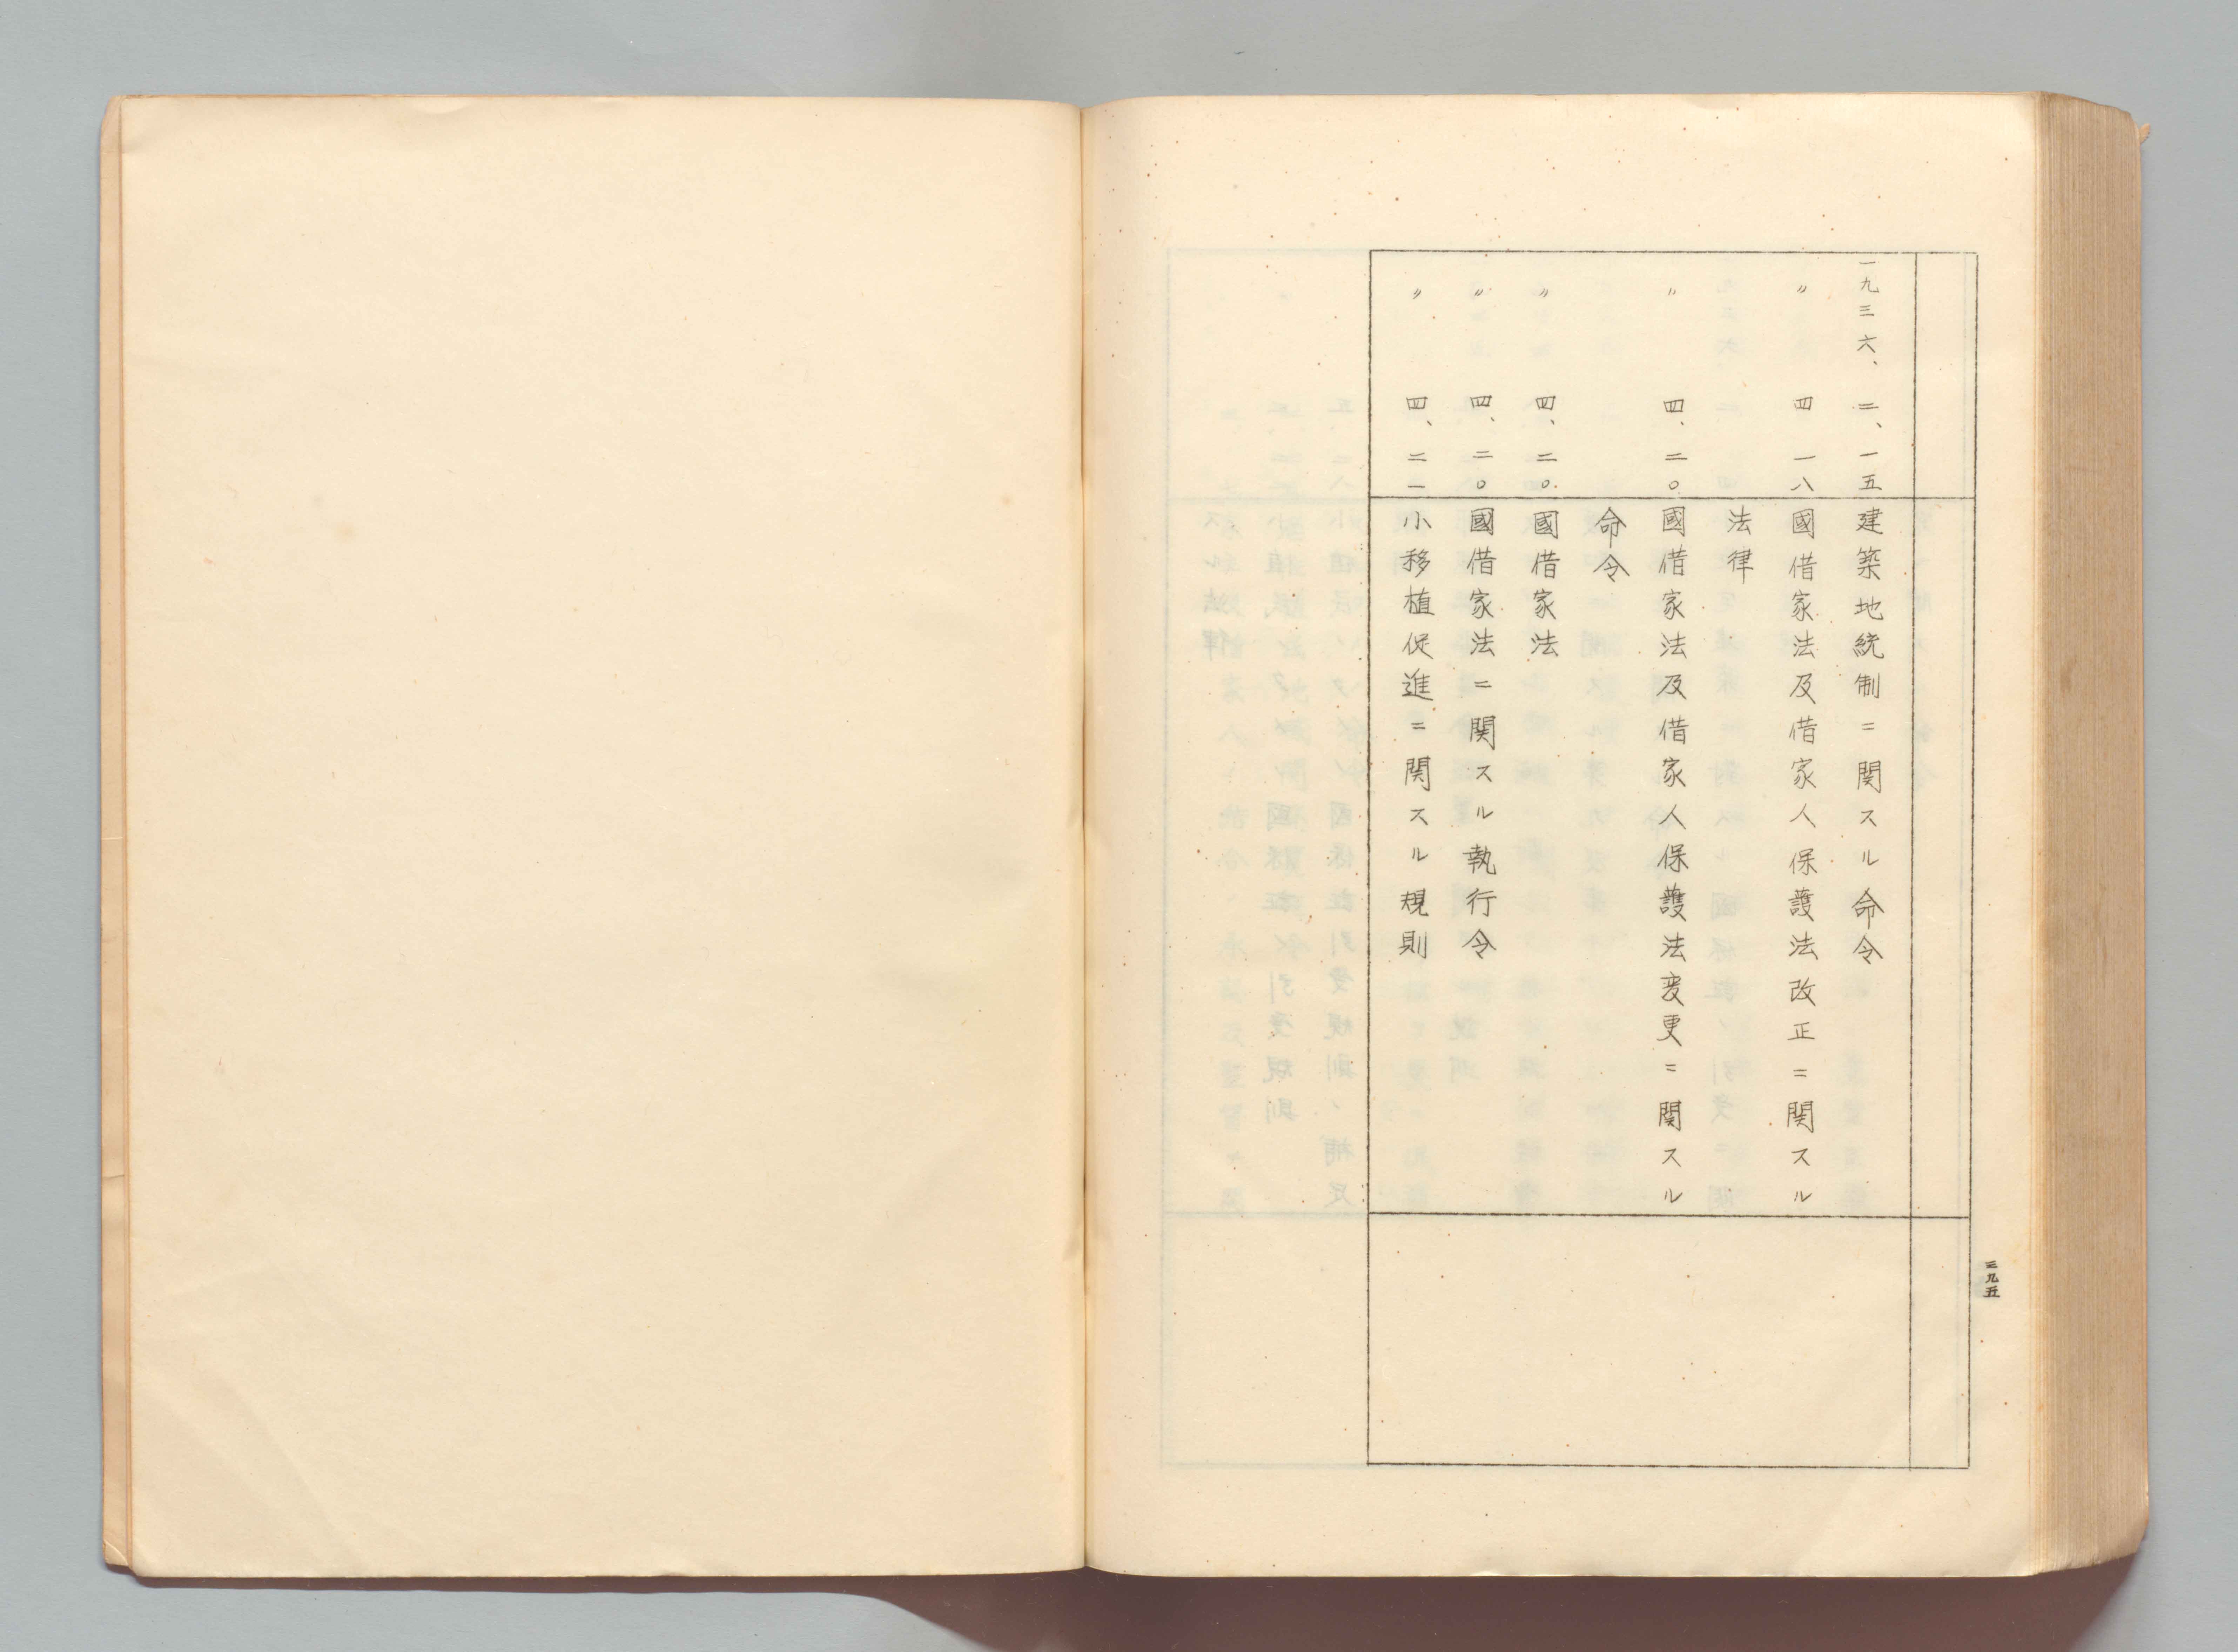 一九三六、二、一五 建築地統制ニ関スル命令
〃 四 一八 國借家法及借家人保護法改正ニ関スル
法律
〃 四、二〇 國借家法及借家人保護法変更ニ関スル
命令
〃 四、二〇. 國借家法
〃 四、二〇 國借家法ニ関スル執行令
〃 四、二一 小移植促進ニ関スル規則
三九五